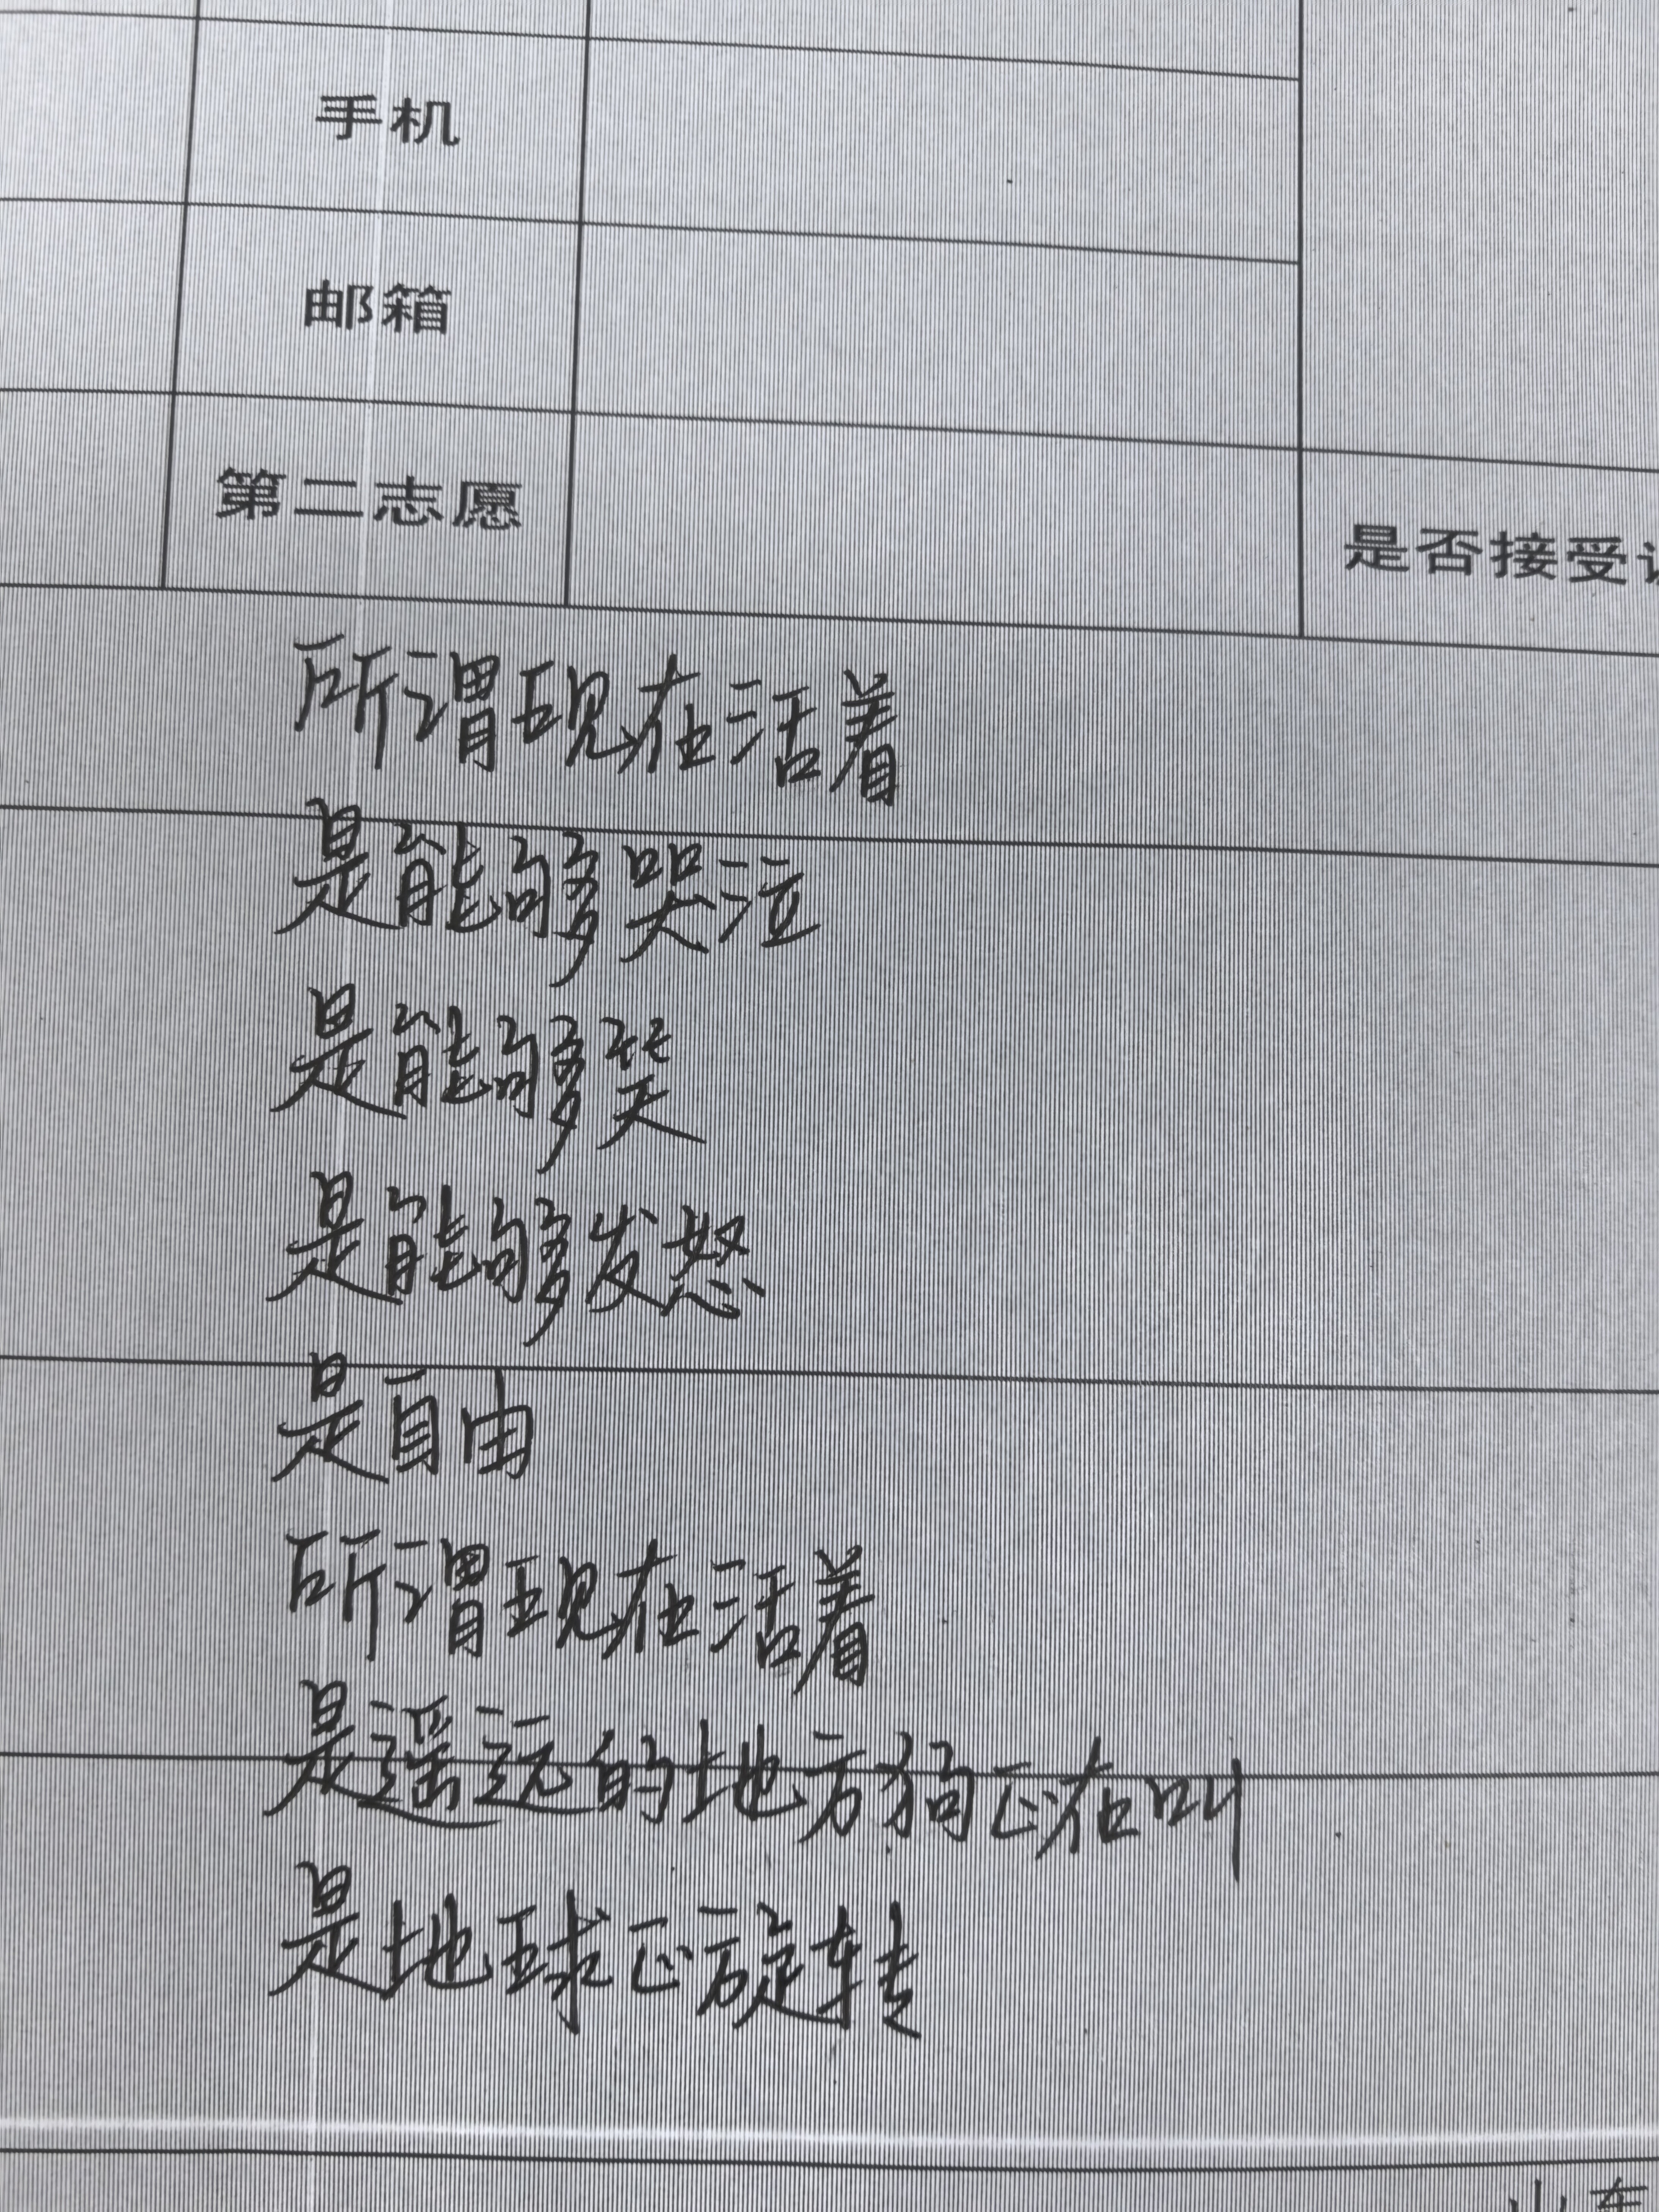 手机
邮箱
第二志愿
是否接受
所谓现在活着
是能够哭泣
是能够笑
是能够发怒
是自由
所谓现在活着
是遥远的地方狗正在叫
是地球正旋转
山东